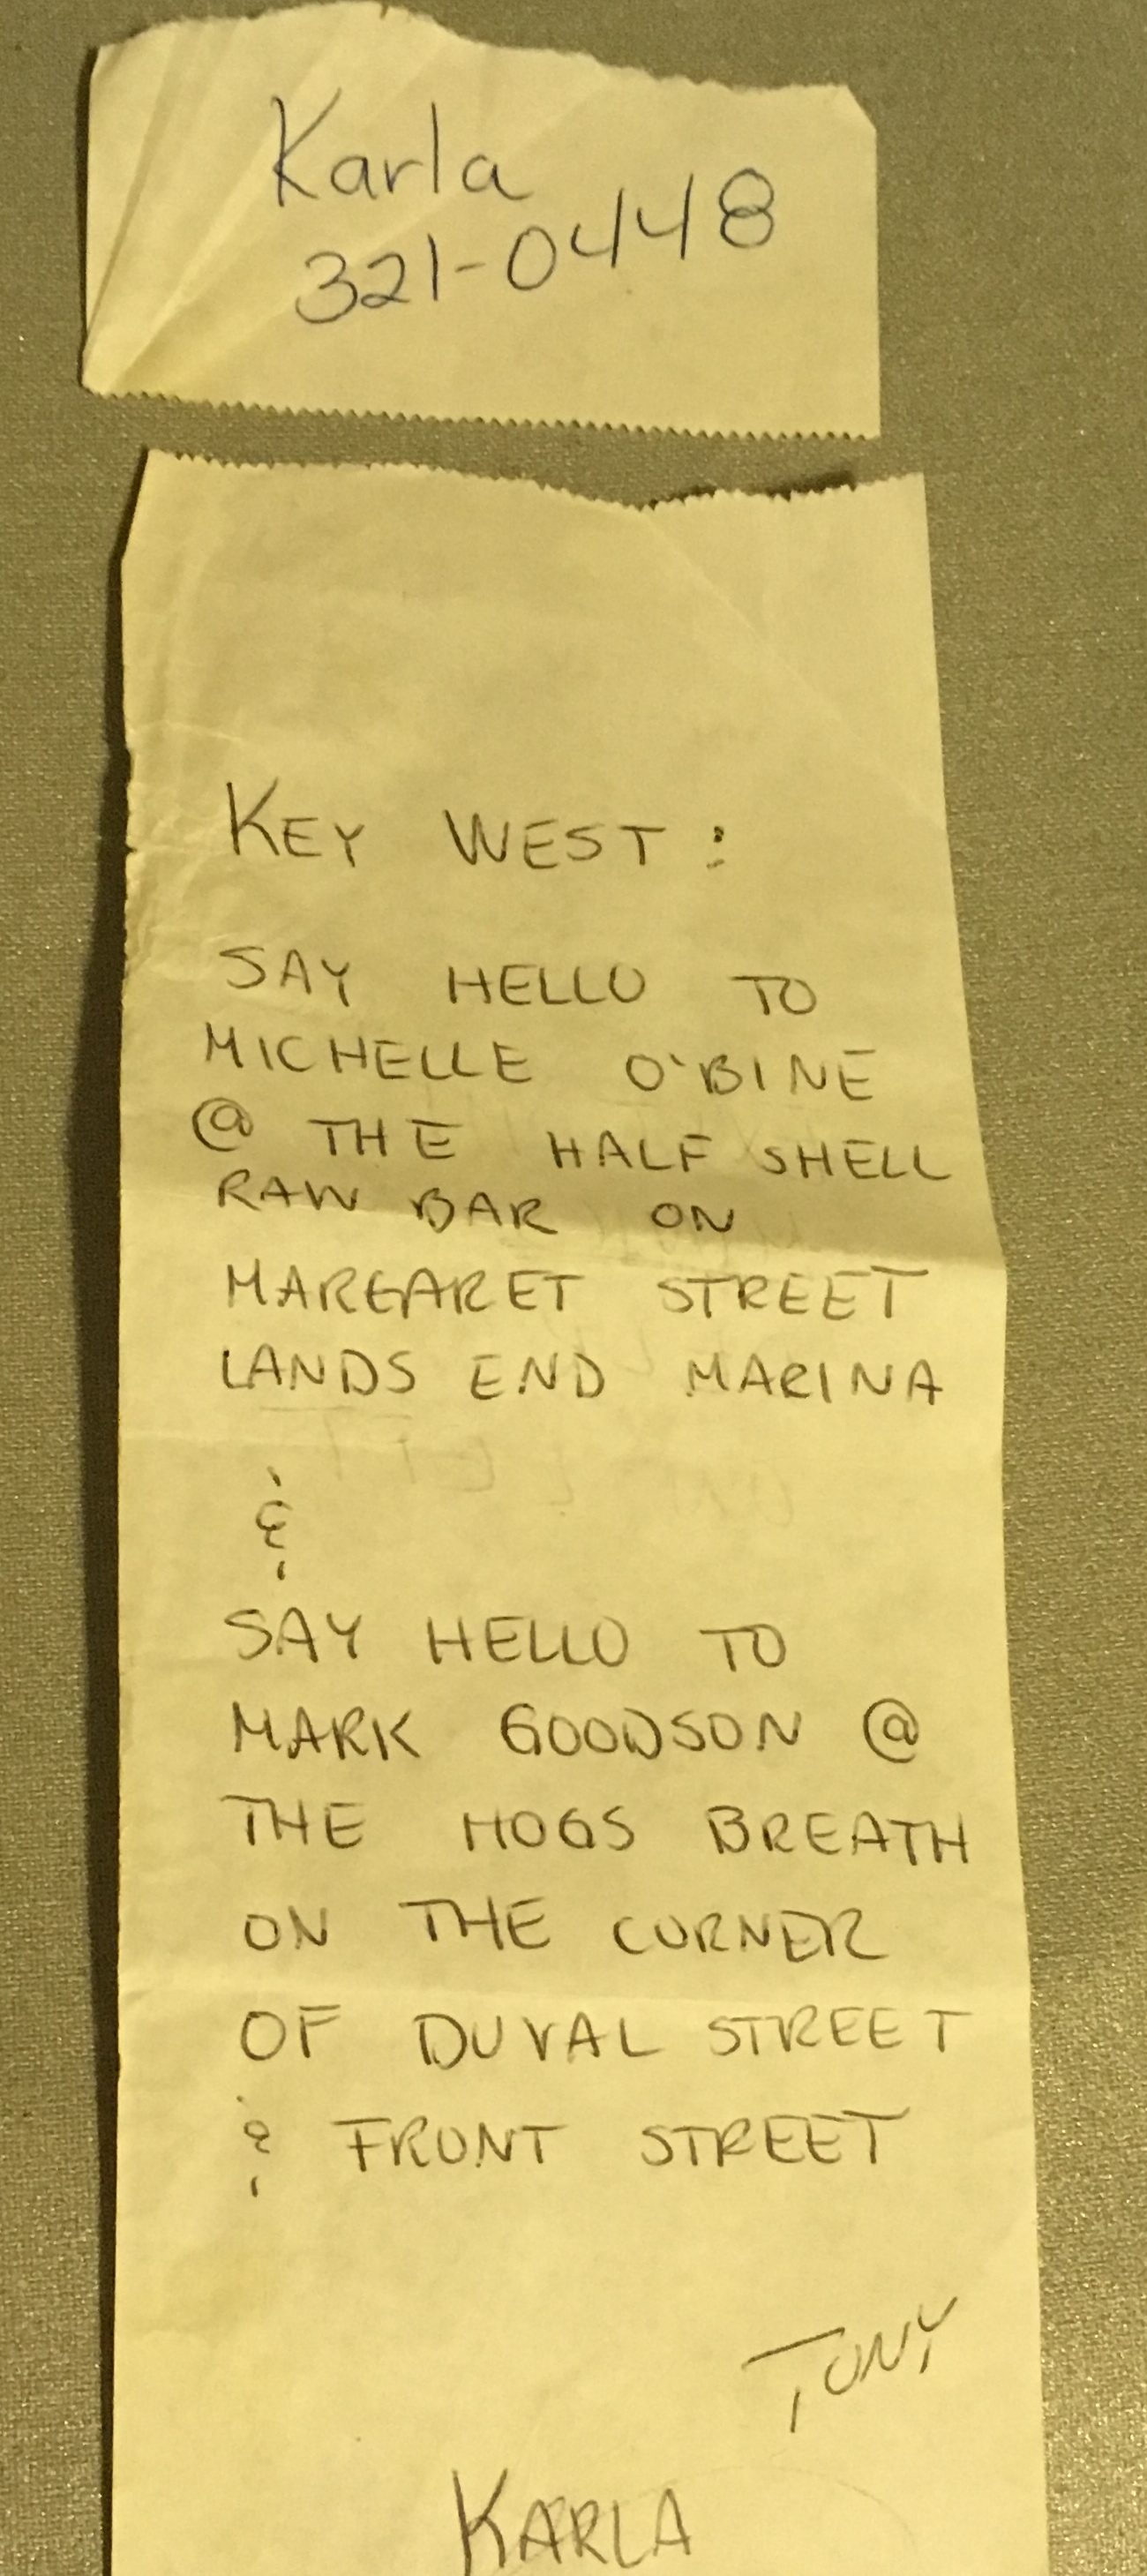 Karla
321-0448
KEY WEST:
SAY HELLO TO
MICHELLE O'BINE
@ THE HALF SHELL
RAW BAR ON
MARGARET STREET
LANDS END MARINA
&
SAY HELLO TO
MARK GOODSON @
THE HOGS BREATH
ON THE CORNER
OF DUVAL STREET
& FRONT STREET
TONY
KARLA